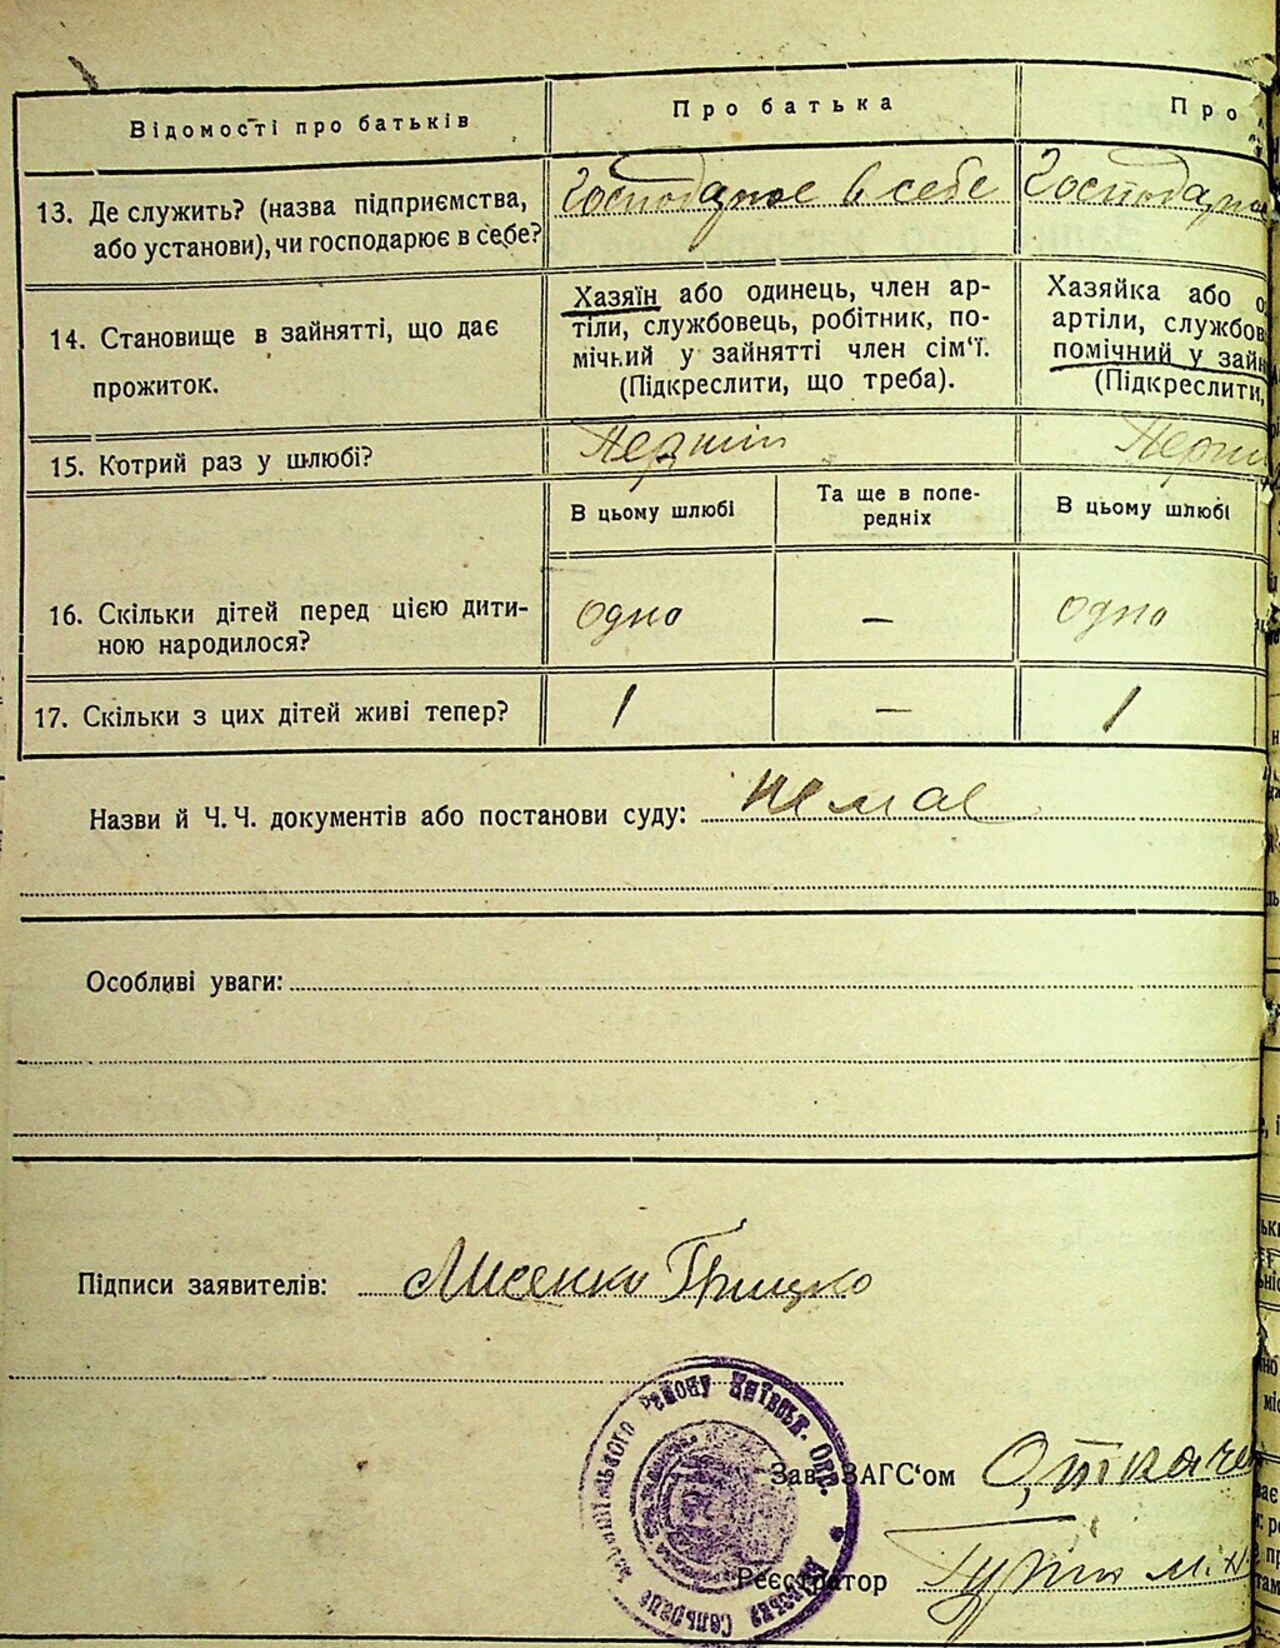 Відомості про батьків
Про батька
Про
13. Де служить? (назва підприємства,
або установи), чи господарює в себе?
Господарює в себе
Господарює
14. Становище в зайнятті, що дає
прожиток.
Хазяїн або одинець, член ар-
тіли, службовець, робітник, по-
мічний у зайнятті член сім'ї.
(Підкреслити, що треба).
Хазяйка або о
артіли, службов
помічний у зайн
(Підкреслити,
15. Котрий раз у шлюбі?
Перший
Перши
16. Скільки дітей перед цією дити-
ною народилося?
В цьому шлюбі
Та ще в попе-
редніх
В цьому шлюбі
одно
—
одно
17. Скільки з цих дітей живі тепер?
1
—
1
Назви й Ч. Ч. документів або постанови суду: немає
Особливі уваги:
Підписи заявителів: Лисенко Грицко
району Київськ. Окр.
Сельрада
Зав. ЗАГС'ом
Реєстратор